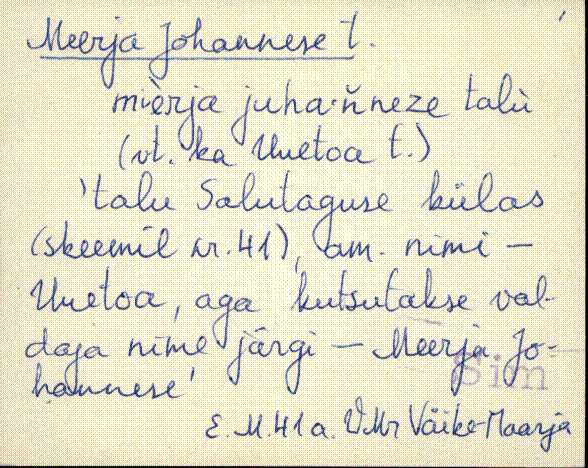 Meerja Johannese t.
mièrja juha·ňneze talù
(vt. ka Uuetoa t.)
'talu Salutaguse külas
(skeemil nr. 41), am. nimi –
Uuetoa, aga kutsutakse val-
daja nime järgi – Meerja Jo-
hannese'
Sim
E. M. 41 a. VMr Väike-Maarja